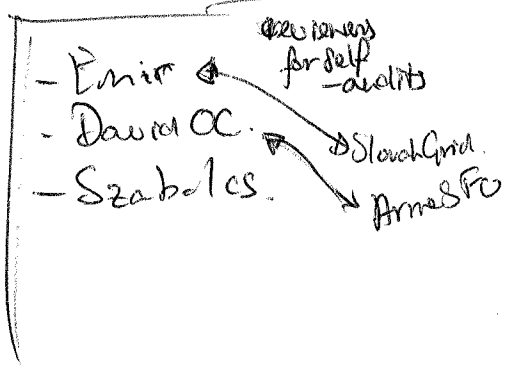 reviewers
for self
-audits
- Emir
- David OC.
- Szabolcs.
SlovakGrid.
ArnesFO